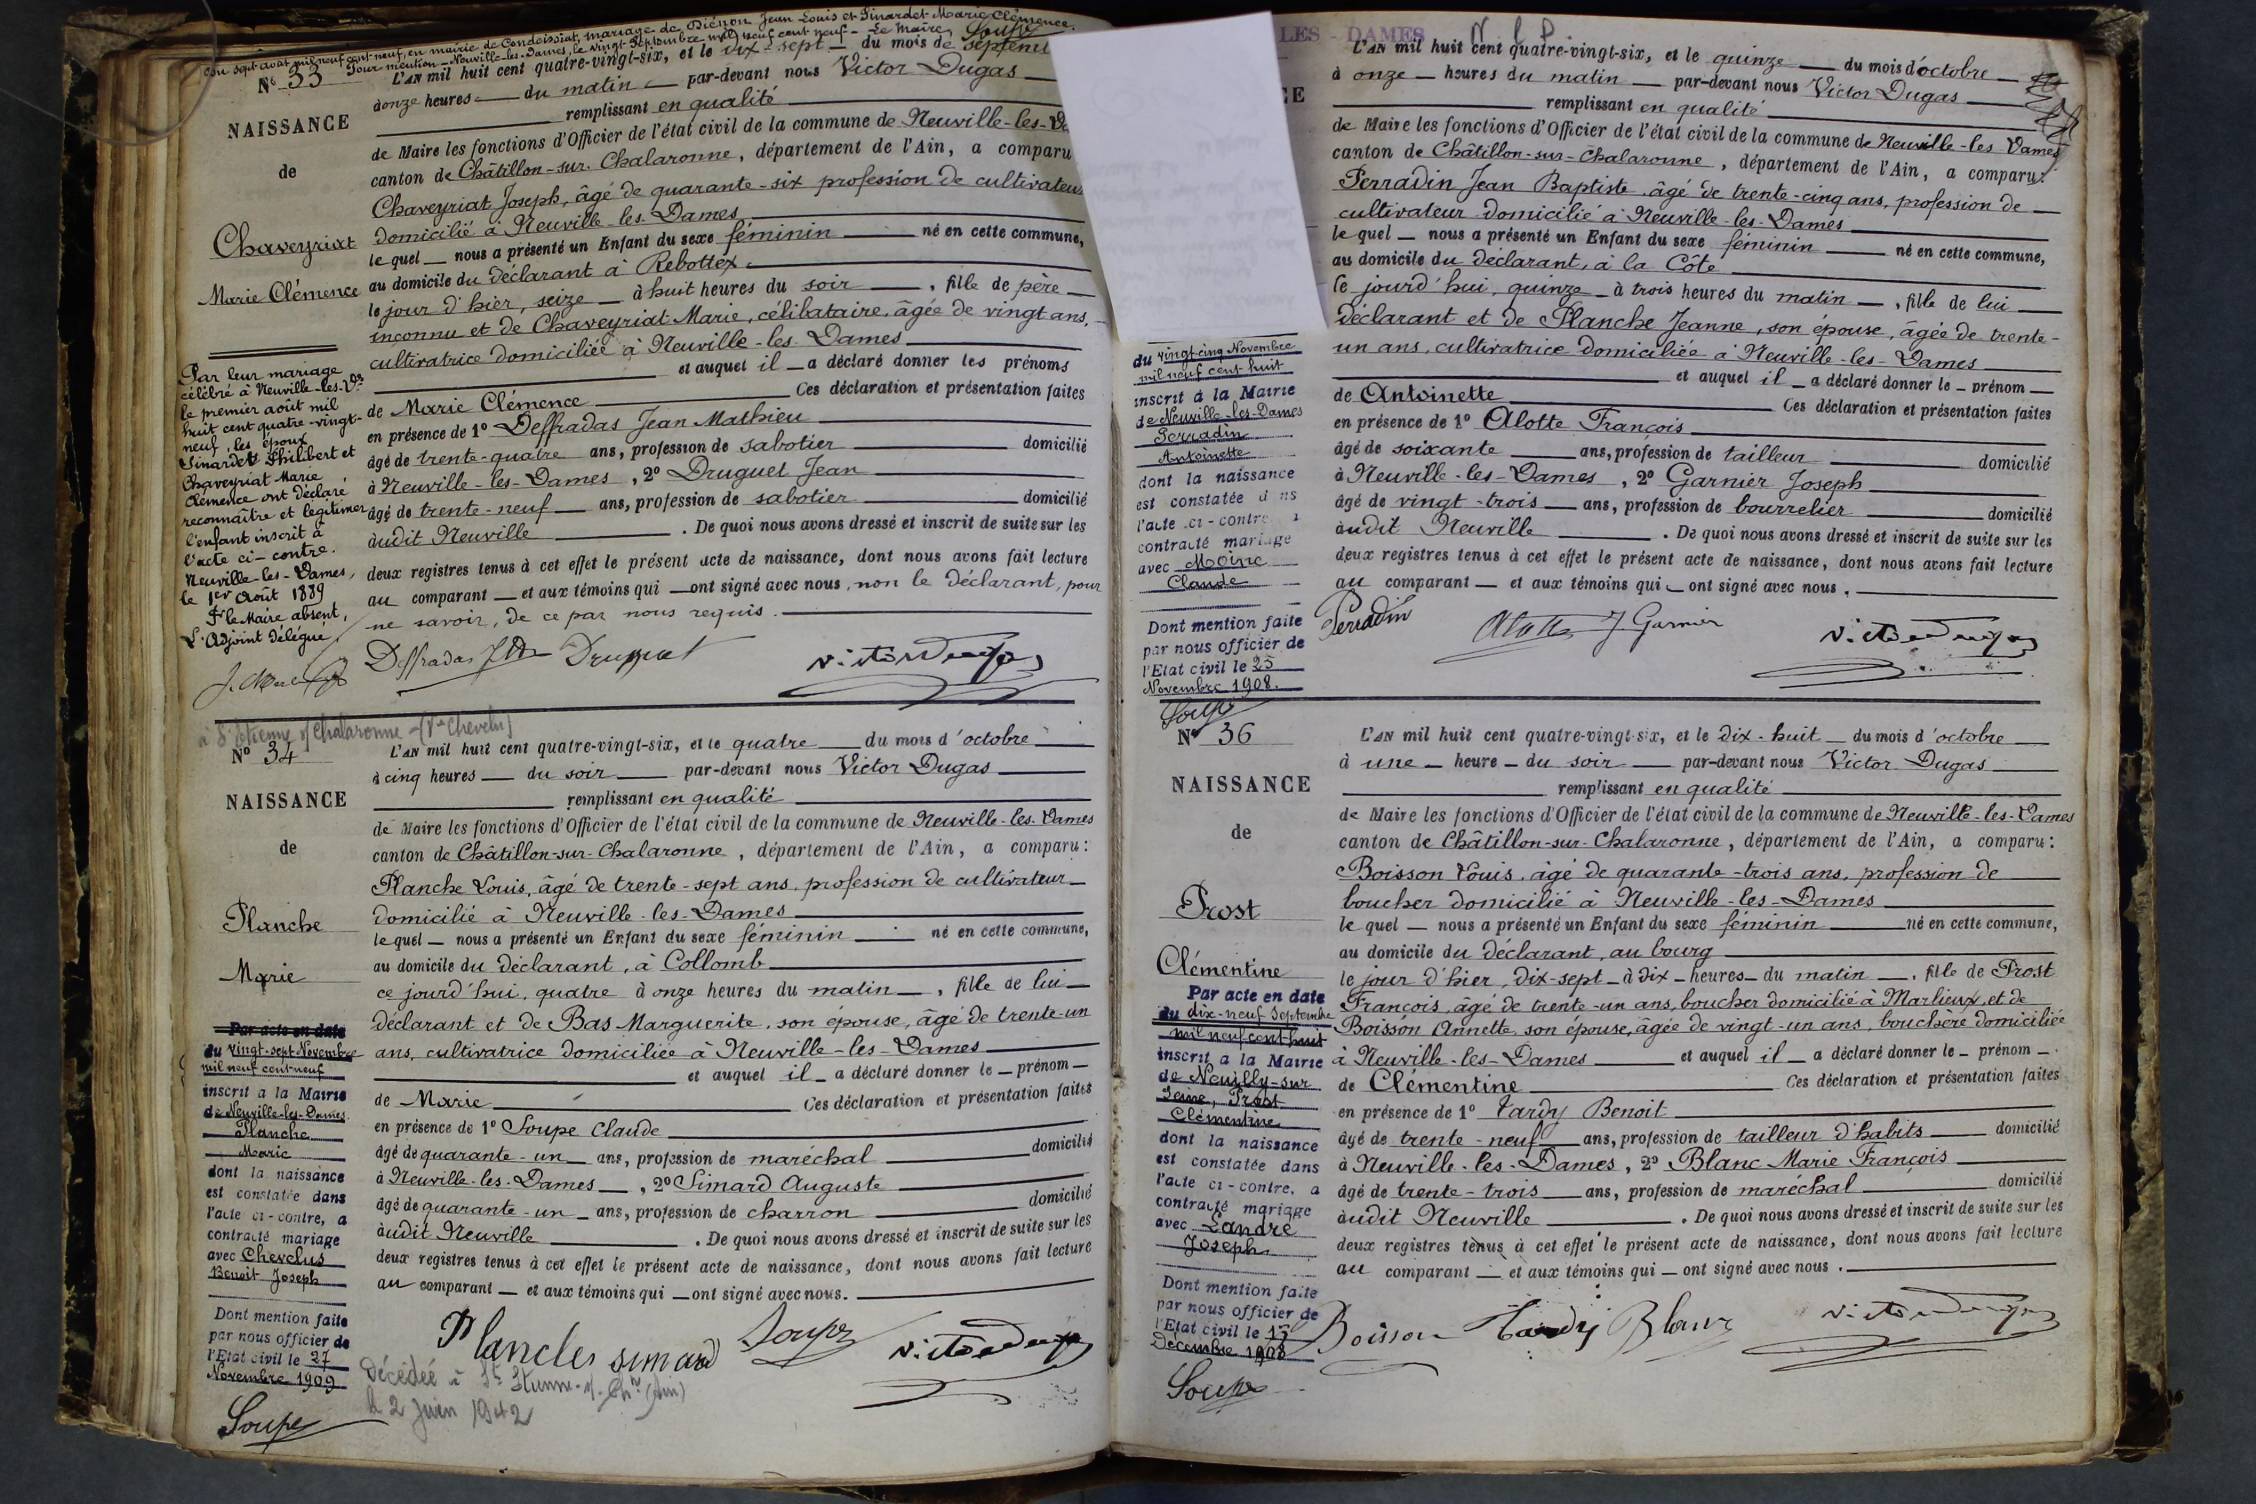 du sept avril mil neuf cent neuf, en mairie de Condeissiat, mariage de Piénon Jean Louis et Pinardet Marie Clémence.
Pour mention Neuville-les-Dames, le vingt septembre mil neuf cent neuf - Le Maire, Soupe
N° 33
NAISSANCE
de
Chaveyriat
Marie Clémence
Par leur mariage
célébré à Neuville-les-Des
le premier août mil
huit cent quatre-vingt-
neuf, les époux
Pinardet Philibert et
Chaveyriat Marie
Clémence ont déclaré
reconnaître et légitimer
l'enfant inscrit à
l'acte ci-contre.
Neuville-les-Dames,
le 1er Août 1889
Pr le Maire absent,
L'Adjoint délégué,
L'AN mil huit cent quatre-vingt-six, et le dix-sept du mois de septem
à onze heures du matin par-devant nous Victor Dugas
remplissant en qualité
de Maire les fonctions d'Officier de l'état civil de la commune de Neuville-les-Da
canton de Châtillon-sur-Chalaronne, département de l'Ain, a comparu
Chaveyriat Joseph, âgé de quarante-six profession de cultivateur
domicilié à Neuville-les-Dames
le quel nous a présenté un Enfant du sexe féminin né en cette commune,
au domicile du déclarant à Rebottex
le jour d'hier, seize à huit heures du soir, fille de père
inconnu et de Chaveyriat Marie, célibataire, âgée de vingt ans,
cultivatrice domiciliée à Neuville-les-Dames
et auquel il a déclaré donner les prénoms
de Marie Clémence Ces déclaration et présentation faites
en présence de 1° Deffradas Jean Mathieu
âgé de trente-quatre ans, profession de sabotier domicilié
à Neuville-les-Dames, 2° Druguet Jean
âgé de trente-neuf ans, profession de sabotier domicilié
àudit Neuville. De quoi nous avons dressé et inscrit de suite sur les
deux registres tenus à cet effet le présent acte de naissance, dont nous avons fait lecture
au comparant et aux témoins qui ont signé avec nous, non le déclarant, pour
ne savoir, de ce par nous requis.
Deffradas Druguet Victor Dugas
à St Etienne s/ Chalaronne - (Vve Chevelu)
N° 34
NAISSANCE
de
Planche
Marie
Par acte en date
du vingt-sept Novembre
mil neuf cent neuf
inscrit à la Mairie
de Neuville-les-Dames
Planche
Marie
dont la naissance
est constatée dans
l'acte ci-contre, a
contracté mariage
avec Chevelus
Benoit Joseph
Dont mention faite
par nous officier de
l'Etat civil le 27
Novembre 1909
Soupe
L'AN mil huit cent quatre-vingt-six, et le quatre du mois d'octobre
à cinq heures du soir par-devant nous Victor Dugas
remplissant en qualité
de Maire les fonctions d'Officier de l'état civil de la commune de Neuville-les-Dames
canton de Châtillon-sur-Chalaronne, département de l'Ain, a comparu :
Planche Louis, âgé de trente-sept ans, profession de cultivateur
domicilié à Neuville-les-Dames
le quel nous a présenté un Enfant du sexe féminin né en cette commune,
au domicile du déclarant, à Collomb
ce jourd'hui, quatre à onze heures du matin, fille de lui
déclarant et de Bas Marguerite, son épouse, âgée de trente-un
ans, cultivatrice domiciliée à Neuville-les-Dames
et auquel il a déclaré donner le prénom
de Marie Ces déclaration et présentation faites
en présence de 1° Soupe Claude
âgé de quarante-un ans, profession de maréchal domicilié
à Neuville-les-Dames, 2° Simard Auguste
âgé de quarante-un ans, profession de charron domicilié
àudit Neuville. De quoi nous avons dressé et inscrit de suite sur les
deux registres tenus à cet effet le présent acte de naissance, dont nous avons fait lecture
au comparant et aux témoins qui ont signé avec nous.
Planche Simard Soupe Victor Dugas
Décédée à St Etienne-s/-Chne (Ain)
le 2 Juin 1942
LES-DAMES
N. l. D.
CE
du vingt-cinq Novembre
mil neuf cent huit
inscrit à la Mairie
de Neuville-les-Dames
Perradin
Antoinette
dont la naissance
est constatée d ns
l'acte ci-contre a
contracté mariage
avec Moine
Claude
Dont mention faite
par nous officier de
l'Etat civil le 25
Novembre 1908.
Soupe
L'AN mil huit cent quatre-vingt-six, et le quinze du mois d'octobre
à onze heures du matin par-devant nous Victor Dugas
remplissant en qualité
de Maire les fonctions d'Officier de l'état civil de la commune de Neuville-les-Dames
canton de Châtillon-sur-Chalaronne, département de l'Ain, a comparu :
Perradin Jean Baptiste, âgé de trente-cinq ans, profession de
cultivateur domicilié à Neuville-les-Dames
le quel nous a présenté un Enfant du sexe féminin né en cette commune,
au domicile du déclarant, à la Côte
ce jourd'hui, quinze à trois heures du matin, fille de lui
déclarant et de Planche Jeanne, son épouse, âgée de trente-
un ans, cultivatrice domiciliée à Neuville-les-Dames
et auquel il a déclaré donner le prénom
de Antoinette Ces déclaration et présentation faites
en présence de 1° Alotte François
âgé de soixante ans, profession de tailleur domicilié
à Neuville-les-Dames, 2° Garnier Joseph
âgé de vingt-trois ans, profession de bourrelier domicilié
àudit Neuville. De quoi nous avons dressé et inscrit de suite sur les
deux registres tenus à cet effet le présent acte de naissance, dont nous avons fait lecture
au comparant et aux témoins qui ont signé avec nous.
Perradin Alotte J. Garnier Victor Dugas
N° 36
NAISSANCE
de
Prost
Clémentine
Par acte en date
du dix-neuf Septembre
mil neuf cent huit
inscrit à la Mairie
de Neuilly-sur
Seine, Prost
Clémentine
dont la naissance
est constatée dans
l'acte ci-contre, a
contracté mariage
avec Landré
Joseph
Dont mention faite
par nous officier de
l'Etat civil le 15
Décembre 1908
Soupe
L'AN mil huit cent quatre-vingt-six, et le dix-huit du mois d'octobre
à une heure du soir par-devant nous Victor Dugas
remplissant en qualité
de Maire les fonctions d'Officier de l'état civil de la commune de Neuville-les-Dames
canton de Châtillon-sur-Chalaronne, département de l'Ain, a comparu :
Boisson Louis, âgé de quarante-trois ans, profession de
boucher domicilié à Neuville-les-Dames
le quel nous a présenté un Enfant du sexe féminin né en cette commune,
au domicile du déclarant, au bourg
le jour d'hier, dix-sept à dix heures du matin, fille de Prost
François, âgé de trente-un ans, boucher domicilié à Marlieux, et de
Boisson Annette, son épouse, âgée de vingt-un ans, bouchère domiciliée
à Neuville-les-Dames et auquel il a déclaré donner le prénom
de Clémentine Ces déclaration et présentation faites
en présence de 1° Tardy Benoit
âgé de trente-neuf ans, profession de tailleur d'habits domicilié
à Neuville-les-Dames, 2° Blanc Marie François
âgé de trente-trois ans, profession de maréchal domicilié
àudit Neuville. De quoi nous avons dressé et inscrit de suite sur les
deux registres tenus à cet effet le présent acte de naissance, dont nous avons fait lecture
au comparant et aux témoins qui ont signé avec nous.
Boisson Tardy Blanc Victor Dugas